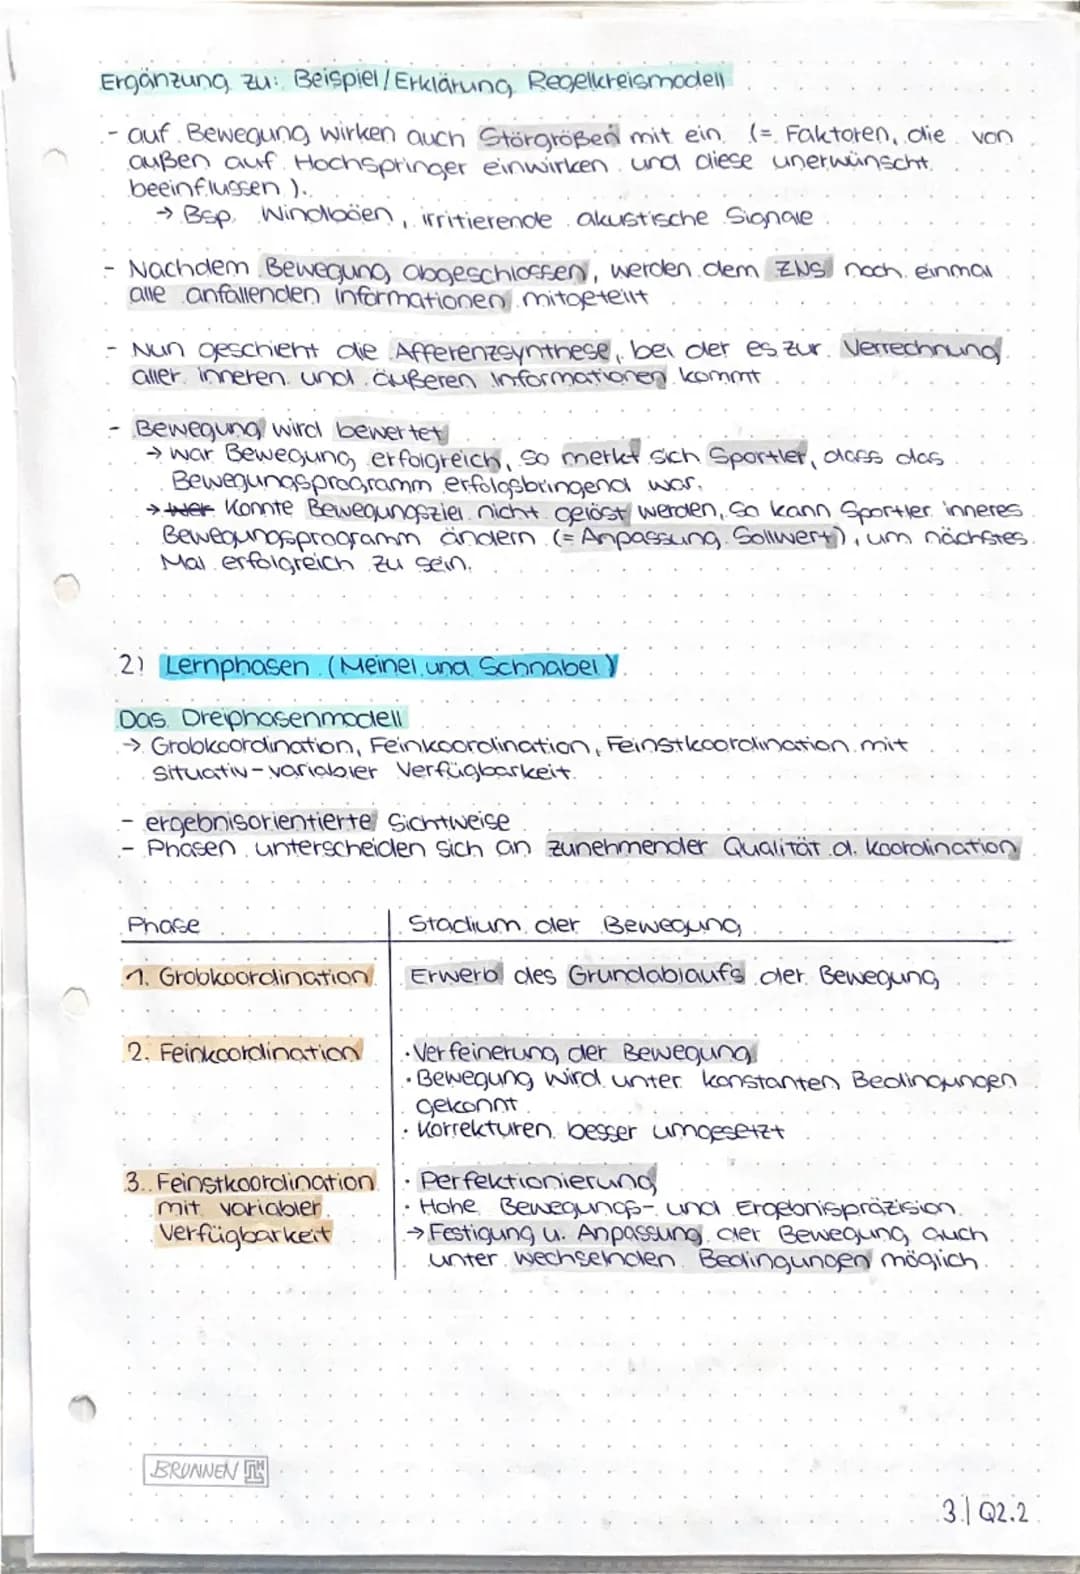 Ergänzung zu: Beispiel/Erklärung Regelkreismodell
- auf Bewegung wirken auch Störgrößen mit ein (= Faktoren, die von
außen auf Hochspringer einwirken und diese unerwünscht
beeinflussen).
→ Bsp. Windböen, irritierende akustische Signale
- Nachdem Bewegung abgeschlossen, werden dem ZNS noch einmal
alle anfallenden Informationen mitgeteilt
- Nun geschieht die Afferenzsynthese, bei der es zur Verrechnung
aller inneren und äußeren Informationen kommt
- Bewegung wird bewertet
→ war Bewegung erfolgreich, so merkt sich Sportler, dass das
Bewegungsprogramm erfolgsbringend war.
→ Konnte Bewegungsziel nicht gelöst werden, so kann Sportler inneres
Bewegungsprogramm ändern (= Anpassung Sollwert), um nächstes
Mal erfolgreich zu sein.
2) Lernphasen (Meinel und Schnabel)
Das Dreiphasenmodell
→ Grobkoordination, Feinkoordination, Feinstkoordination mit
situativ-variabler Verfügbarkeit
- ergebnisorientierte Sichtweise
- Phasen unterscheiden sich an zunehmender Qualität d. Koordination
Phase Stadium der Bewegung
1. Grobkoordination Erwerb des Grundablaufs der Bewegung
2. Feinkoordination · Verfeinerung der Bewegung
· Bewegung wird unter konstanten Bedingungen
gekonnt
· Korrekturen besser umgesetzt
3. Feinstkoordination · Perfektionierung
mit variabler · Hohe Bewegungs- und Ergebnispräzision
Verfügbarkeit → Festigung u. Anpassung der Bewegung auch
unter wechselnden Bedingungen möglich
BRUNNEN
3.| Q2.2